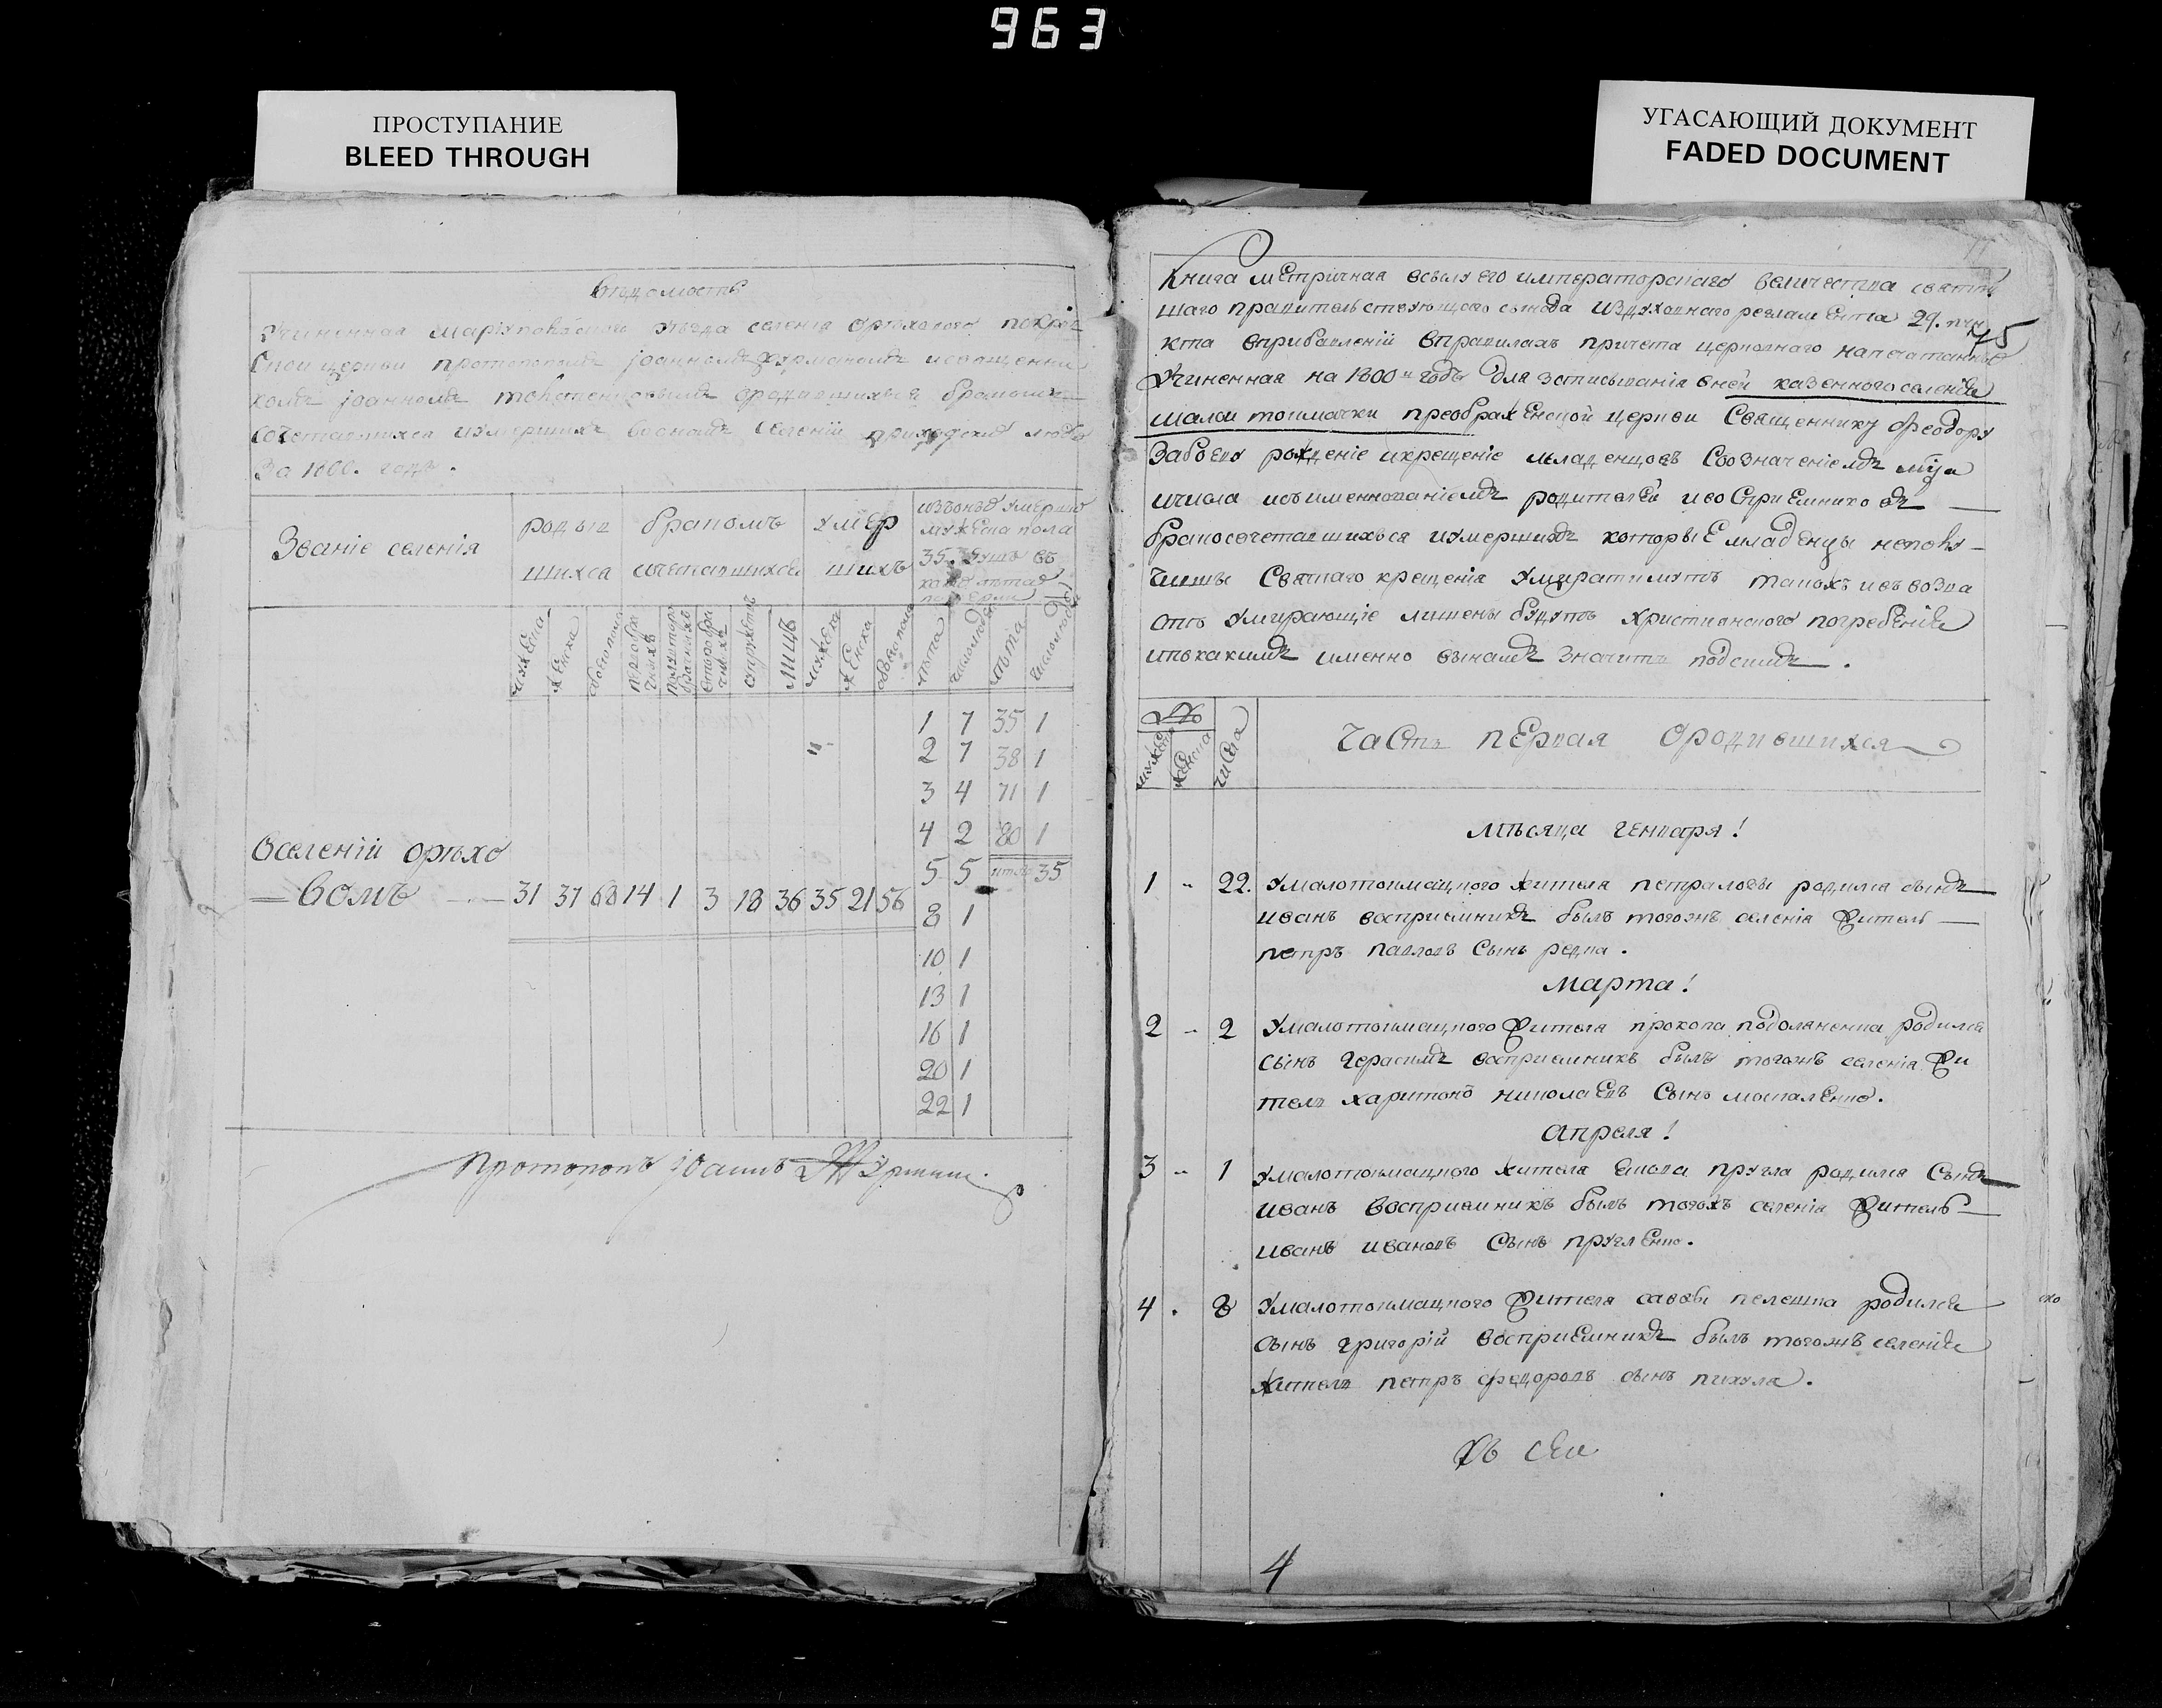 963
ПРОСТУПАНИЕ
BLEED THROUGH
УГАСАЮЩИЙ ДОКУМЕНТ
FADED DOCUMENT
Вѣдомость
Учиненная маріупольскаго уѣзда селенія орѣхового покров
ской церкви протопопомъ іоанномъ священни
комъ іоанномъ ородившихся бракомъ
сочетавшихся иумершихъ воономъ селеніи приходскихъ людехъ
За 1800. годъ.
Званіе селенія
родыв
шихся
бракомъ
сочетавшихся
умер
шихъ
изъонхъ умерло
мужеска пола
35. душъ въ
мужеска
женска
обоего пола
лица
мужеска
женска
обоего пола
лѣта
лѣта
1 7 35 1
2 7 38 1
3 4 71 1
4 2 80 1
5 5 итого 35
8 1
10 1
13 1
16 1
20 1
22 1
Вселеніи орѣхо
вомъ 31 37 68 14 1 3 18 36 35 21 56
Протопопъ іоаннъ
75
Книга метричная всилу его императорскаго величества святѣй
шаго правительствующаго сѵнода издуховнаго регламента 29. пун
кта вприбавленіи вправилахъ причета церковнаго напечатанныхъ
Учиненная на 1800й годъ для записыванія вней казенного селенія
малои токмачки преображенской церкви Священнику Феодору
Забоею рожденіе икрещеніе младенцовъ Соозначеніемъ мца
ичисла исъименнованіемъ родителей ивоспріемниковъ
бракосочетавшихъся иумершихъ которые младенцы неполу
чивши Святаго крещенія умирать имутъ такожъ исъ возра
ста умирающіе лишены будутъ христианского погребенія
ипокакимъ именно винамъ значитъ подсимъ.
№
мужеска
женска
числа
Часть первая ородившихся
Мѣсяца генваря!
1 " 22. Умалотокмацкого жителя петра родился сынъ
иванъ восприемникъ былъ тогожъ селенія житель
петръ павловъ сынъ редка.
Марта!
2 " 2 Умалотокмацкого жителя прокопа подоляненка родился
сынъ герасимъ восприемникъ былъ тогожъ селенія жи
тель харитонъ николаевъ сынъ москаленко.
Апреля!
3 " 1 Умалотокмацкого жителя родился сынъ
иванъ восприемникъ былъ тогожъ селенія житель
иванъ ивановъ сынъ
4 " 8 Умалотокмацкого жителя саввы пелешка родился
сынъ григорій восприемникъ былъ тогожъ селенія
житель петръ федоровъ сынъ пихула.
Къ сей
4